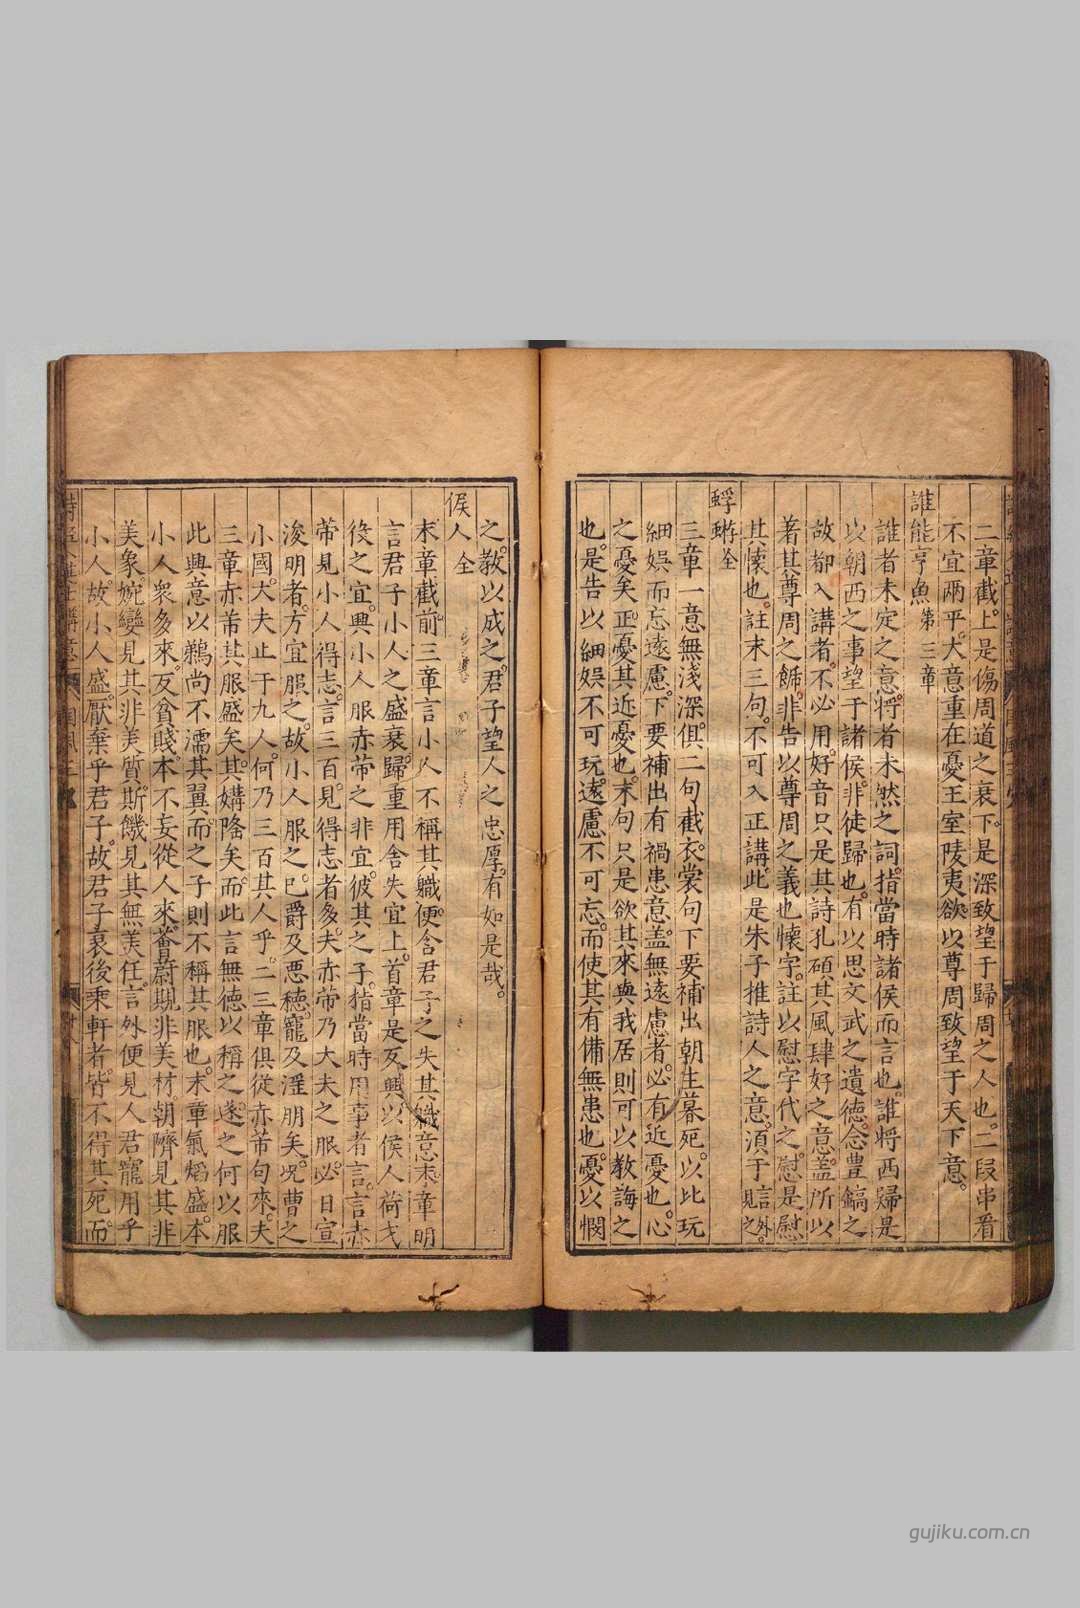 二章截。上是傷周道之衰。下是深致望于歸周之人也。二段串看
不宜两平。大意重在憂王室陵夷。欲以尊周致望于天下意。
誰能亨魚第三章
誰者未定之意。將者未然之詞。指當時諸侯而言也。誰將西歸是
以朝西之事望于諸侯。非徒歸也。有以思文武之遺德。念豊鎬之
故都入講者。不必用。好音只是其詩孔碩其風肆好之意。盖所以
著其尊周之篩。非告以尊周之義也。懷字。註以慰字代之。慰是慰
其懷也。註末三句。不可入正講。此是朱子推詩人之意。湏于言外見之。
蜉蝣全
三章一意無淺深。俱二句截。衣裳句下要補出朝生暮死。以比玩
細娯而忘遠慮。下要補出有禍患意。盖無遠慮者。必有近憂也。心
之憂矣。正憂其近憂也。末句只是欲其來與我居。則可以教誨之
也。是告以細娯不可玩。遠慮不可忘。而使其有備無患也。憂以憫
之。教以成之。君子望人之忠厚。有如是哉。
候人全
末章截。前三章言小人不稱其職。便含君子之失其職意。末章明
言君子小人之盛衰。歸重用舍失宜上。首章是反興。以侯人荷戈
役之宜。興小人服赤芾之非宜。彼其之子。指當時用事者言。言赤
芾見小人得志。言三百。見得志者多。夫赤芾乃大夫之服。必日宣
浚明者。方宜服之。故小人服之。已爵及悪穗。寵及滛朋矣。况曹之
小國。大夫止于九人。何乃三百其人乎。二三章俱從赤芾句來。夫
三章赤芾其服盛矣。其媾隆矣。而此言無徳以稱之。遂之何以服
此興意。以鵜尚不濡其翼。而之子則不稱其服也。末章氣熖盛本
小人衆多來。反貧賤。本不妄從人來。薈蔚䂓非美材。朝隮見其非
美象。婉孌見其非美質。斯饑見其無美任。言外便見人君寵用乎
小人。故小人盛。厭棄乎君子。故君子衰。後乘軒者。皆不得其死。而
gujiku.com.cn